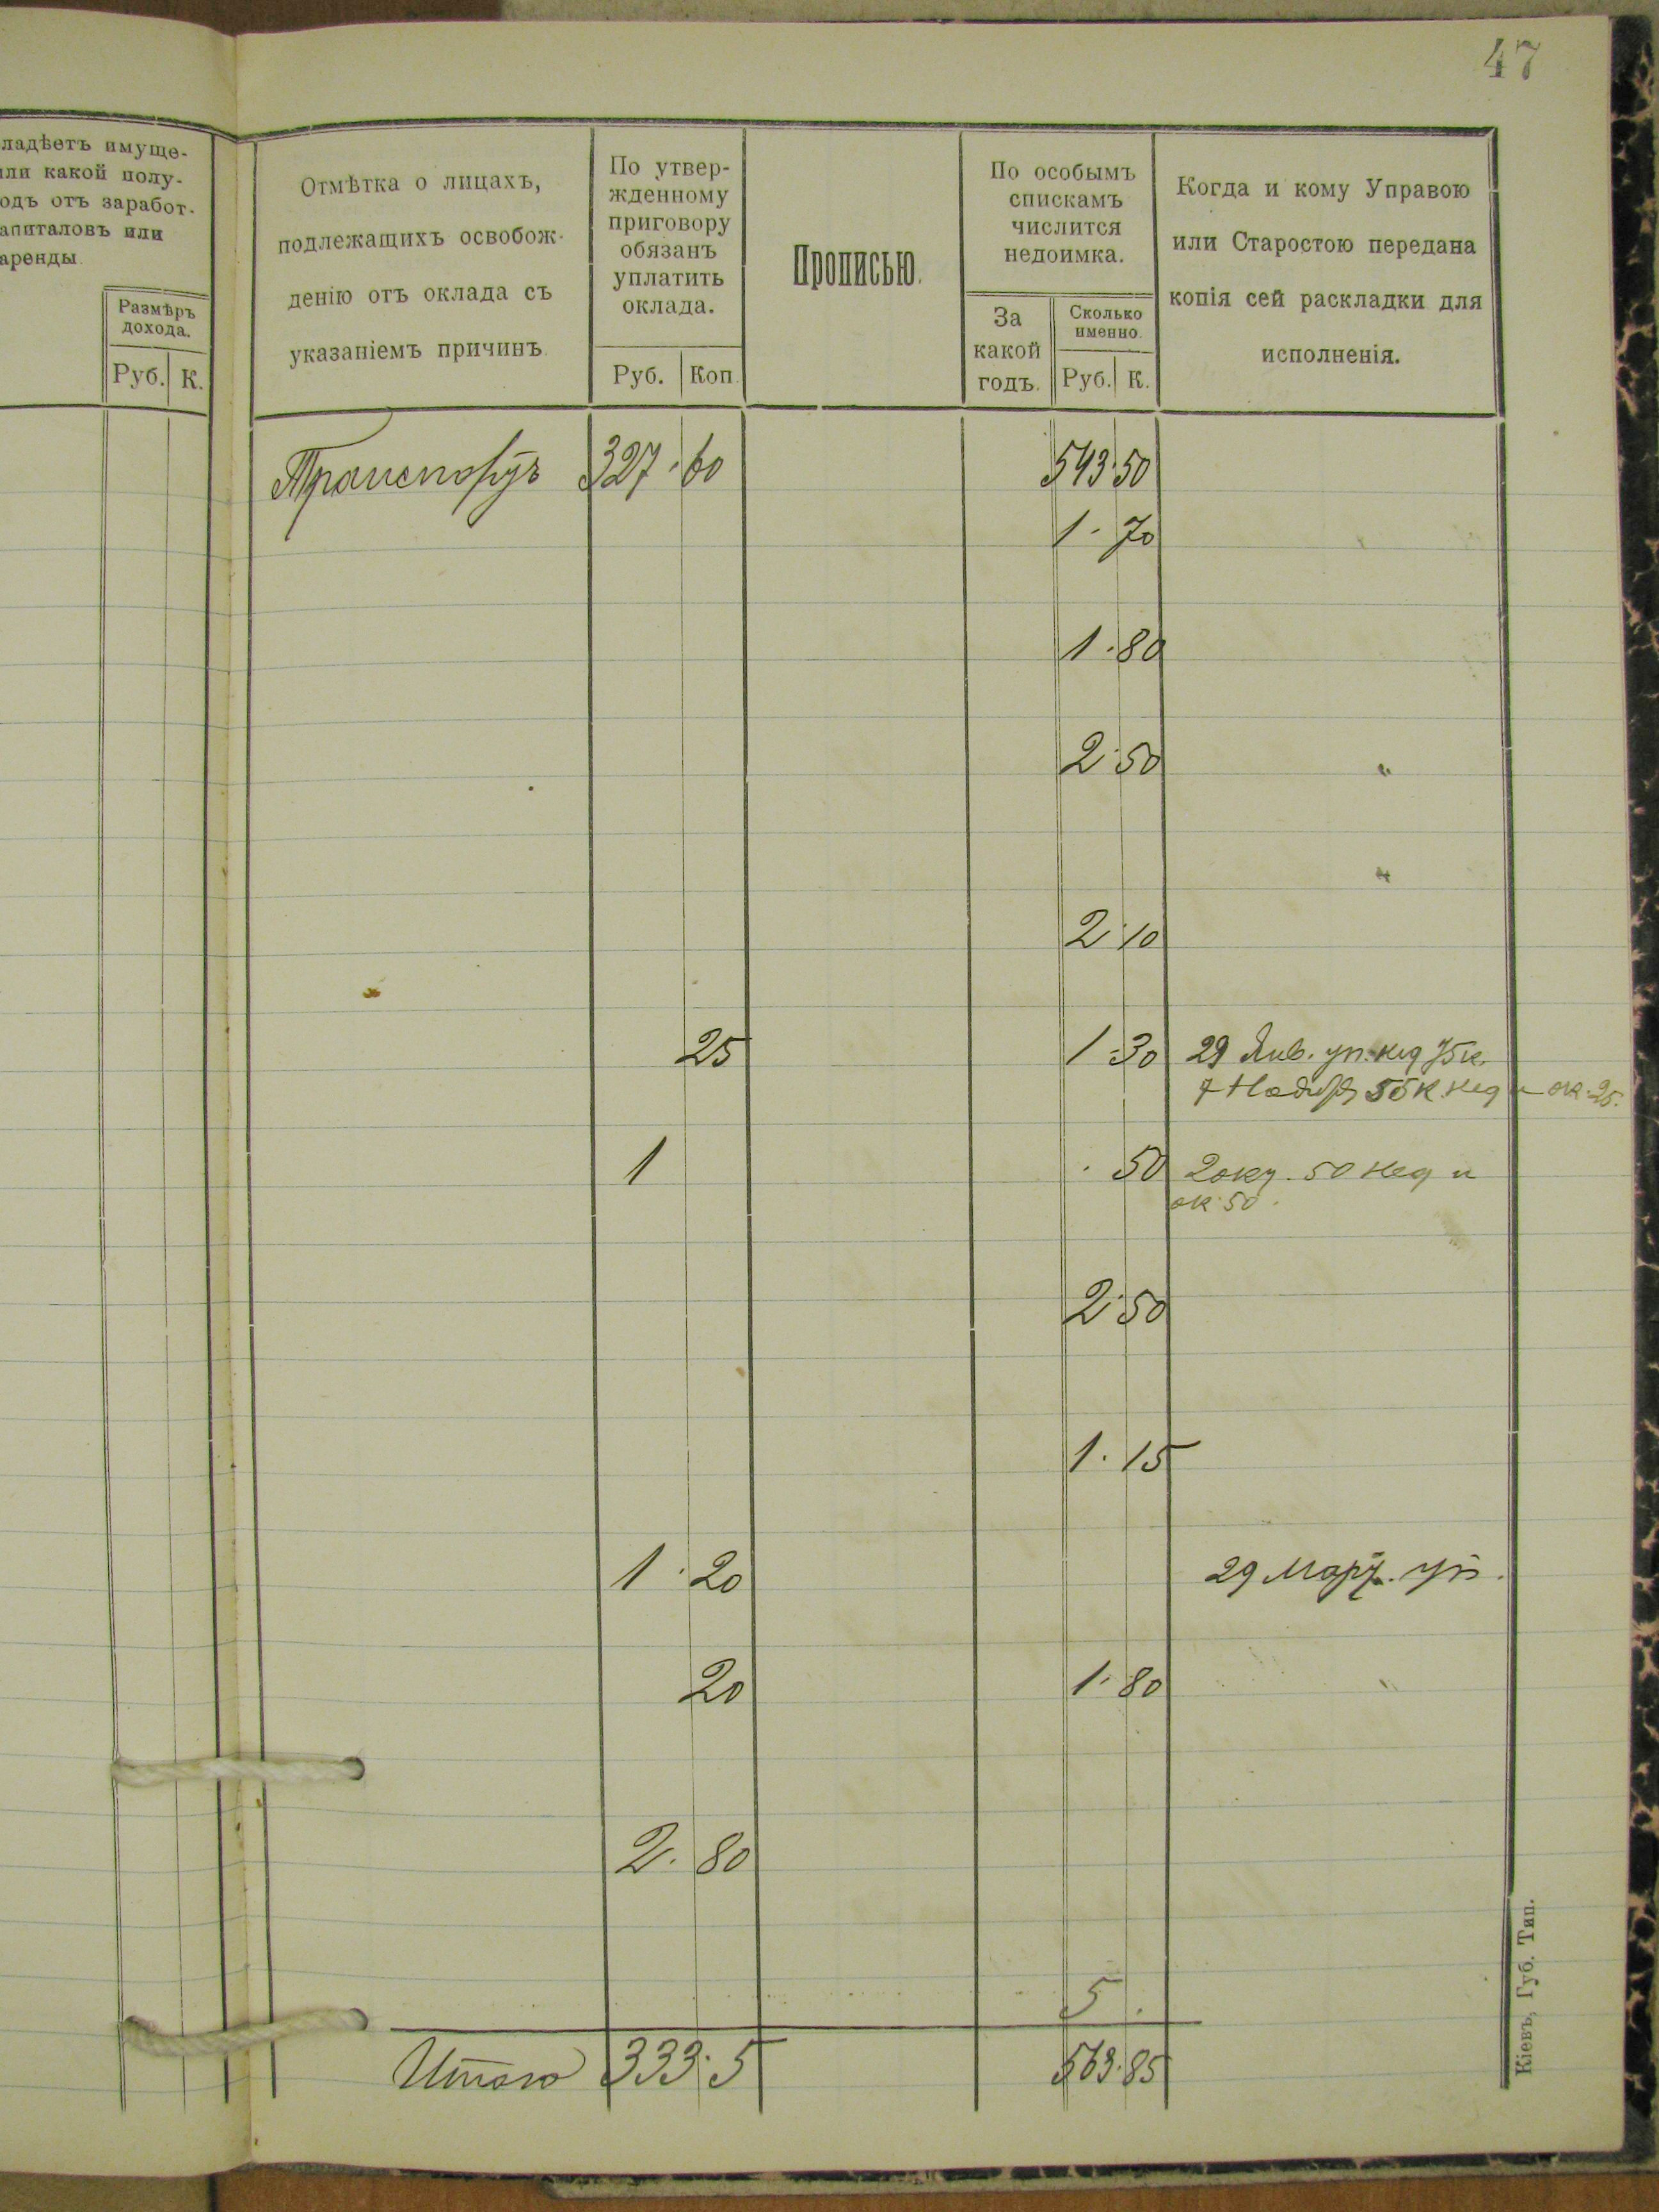 47
ладѣетъ имуще-
или какой полу-
одъ отъ заработ-
апиталовъ или
аренды
Размѣръ
дохода.
Руб. К.
Отмѣтка о лицахъ,
подлежащихъ освобож-
денію отъ оклада съ
указаніемъ причинъ.
По утвер-
жденному
приговору
обязанъ
уплатить
оклада.
Руб. Коп.
Прописью.
По особымъ
спискамъ
числится
недоимка.
За
какой
годъ.
Сколько
именно.
Руб. К.
Когда и кому Управою
или Старостою передана
копія сей раскладки для
исполненія.
Транспортъ 327·60 543·50
1·70
1·80
2·50
2·10
25 1·30 29 Янв. уп. нед 75к.
7 Ноября 55к. нед и ок. 25.
1 · 50 2 окт. 50 нед и
ок 50.
2·50
1·15
1·20 29 Март. уп.
20 1·80
2·80
5 ·
Итого 333·5 563·85
Кіевъ, Губ. Тип.